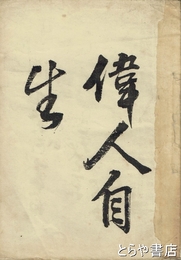 偉人自
生
とらや書店